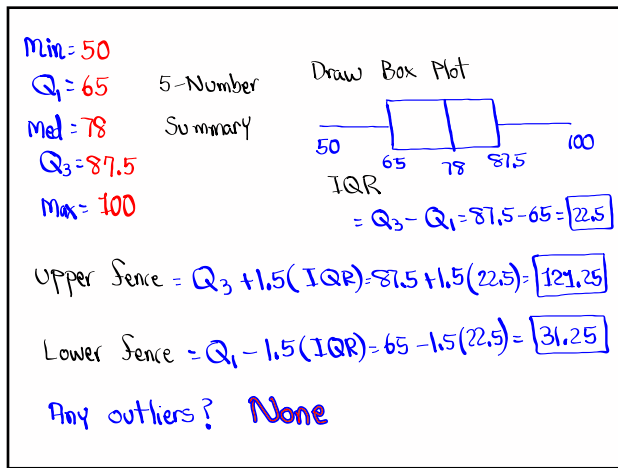 Min = 50
Q₁ = 65
Med = 78
Q₃ = 87.5
Max = 100
5-Number
Summary
Draw Box Plot
50 65 78 87.5 100
IQR
= Q₃ - Q₁ = 87.5 - 65 = 22.5
Upper fence = Q₃ + 1.5(IQR) = 87.5 + 1.5(22.5) = 121.25
Lower fence = Q₁ - 1.5(IQR) = 65 - 1.5(22.5) = 31.25
Any outliers? None